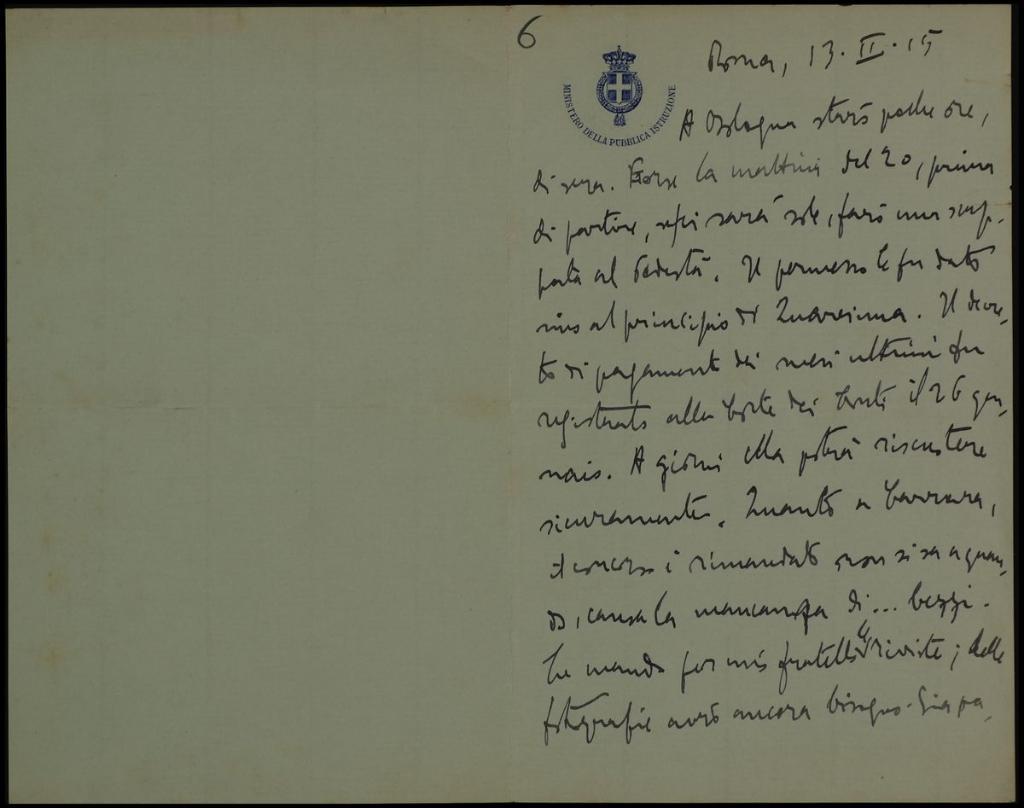 6
Roma, 13. II. 15
MINISTERO DELLA PUBBLICA ISTRUZIONE
A Bologna starò poche ore,
di sera. Forse la mattina del 20, prima
di partire, se ci sarà sole, farò una scap-
pata al Podestà. Il permesso le fu dato
sino al principio di Quaresima. Il decre-
to di pagamento dei mesi ultimi fu
registrato alla Corte dei Conti il 26 gen-
naio. A giorni ella potrà riscuotere
sicuramente. Quanto a Carrara,
il concorso è rimandato non si sa a quan-
do, causa la mancanza di... bezzi.
Le mando per mio fratello le riviste; delle
fotografie avrò ancora bisogno.